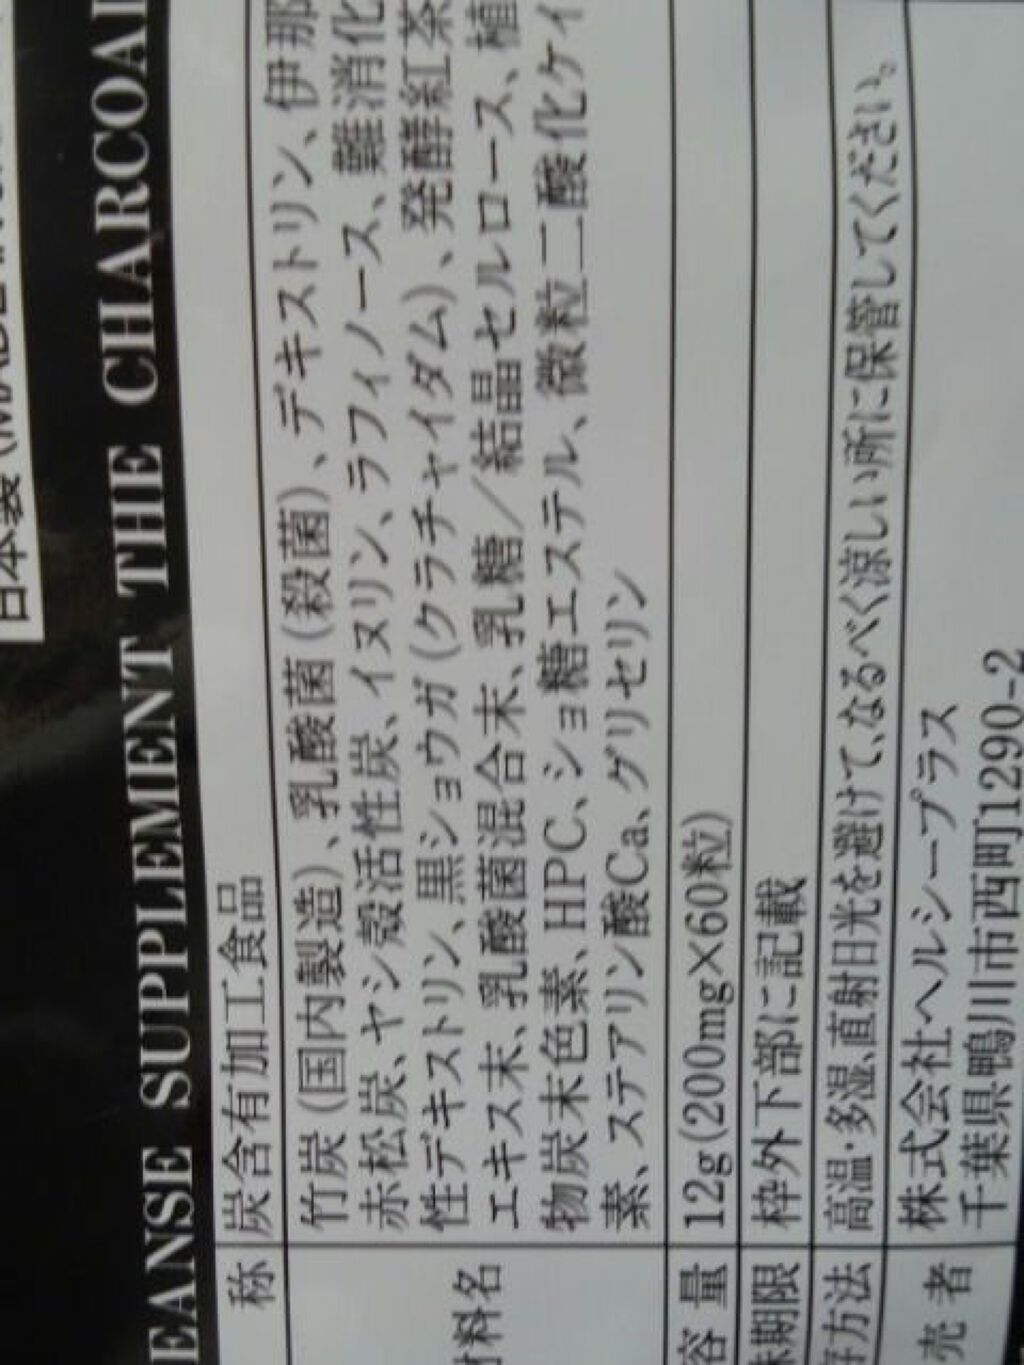 日本製
EANSE SUPPLEMENT THE CHARCOAL
称 炭含有加工食品
材料名 竹炭（国内製造）、乳酸菌（殺菌）、デキストリン、伊那
赤松炭、ヤシ殻活性炭、イヌリン、ラフィノース、難消化
性デキストリン、黒ショウガ（クラチャイダム）、発酵紅茶
エキス末、乳酸菌混合末、乳糖／結晶セルロース、植
物炭末色素、HPC、ショ糖エステル、微粒二酸化ケイ
素、ステアリン酸Ca、グリセリン
容量 12g(200mg×60粒)
味期限 枠外下部に記載
存方法 高温・多湿、直射日光を避けて、なるべく涼しい所に保管してください。
売者 株式会社ヘルシープラス
千葉県鴨川市西町1290-2